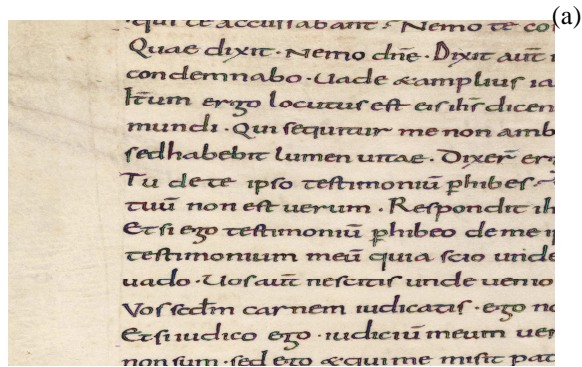 (a)
qui te accusabant · Nemo te co
Quae dixit · Nemo dn̄e · Dixit aut̄ i
condemnabo · Uade &amplius ia
It̄um ergo locutus est eis ihs̄ dicen
mundi · Qui sequitur me non amb
sedhabebit lumen uitae · Dixer̄ erg
Tu dete ipso testimoniū ꝑhibes ·
tuū non est uerum · Respondit ih
Etsi ego testimoniū ꝑhibeo deme i
testimonium meū quia scio unde
uado · Uos aut̄ nescitis unde uenio
Vos sedm̄ carnem iudicatis · ego no
Etsi iudico ego · iudiciū meum uer
non sum · sed ego &quime misit pat